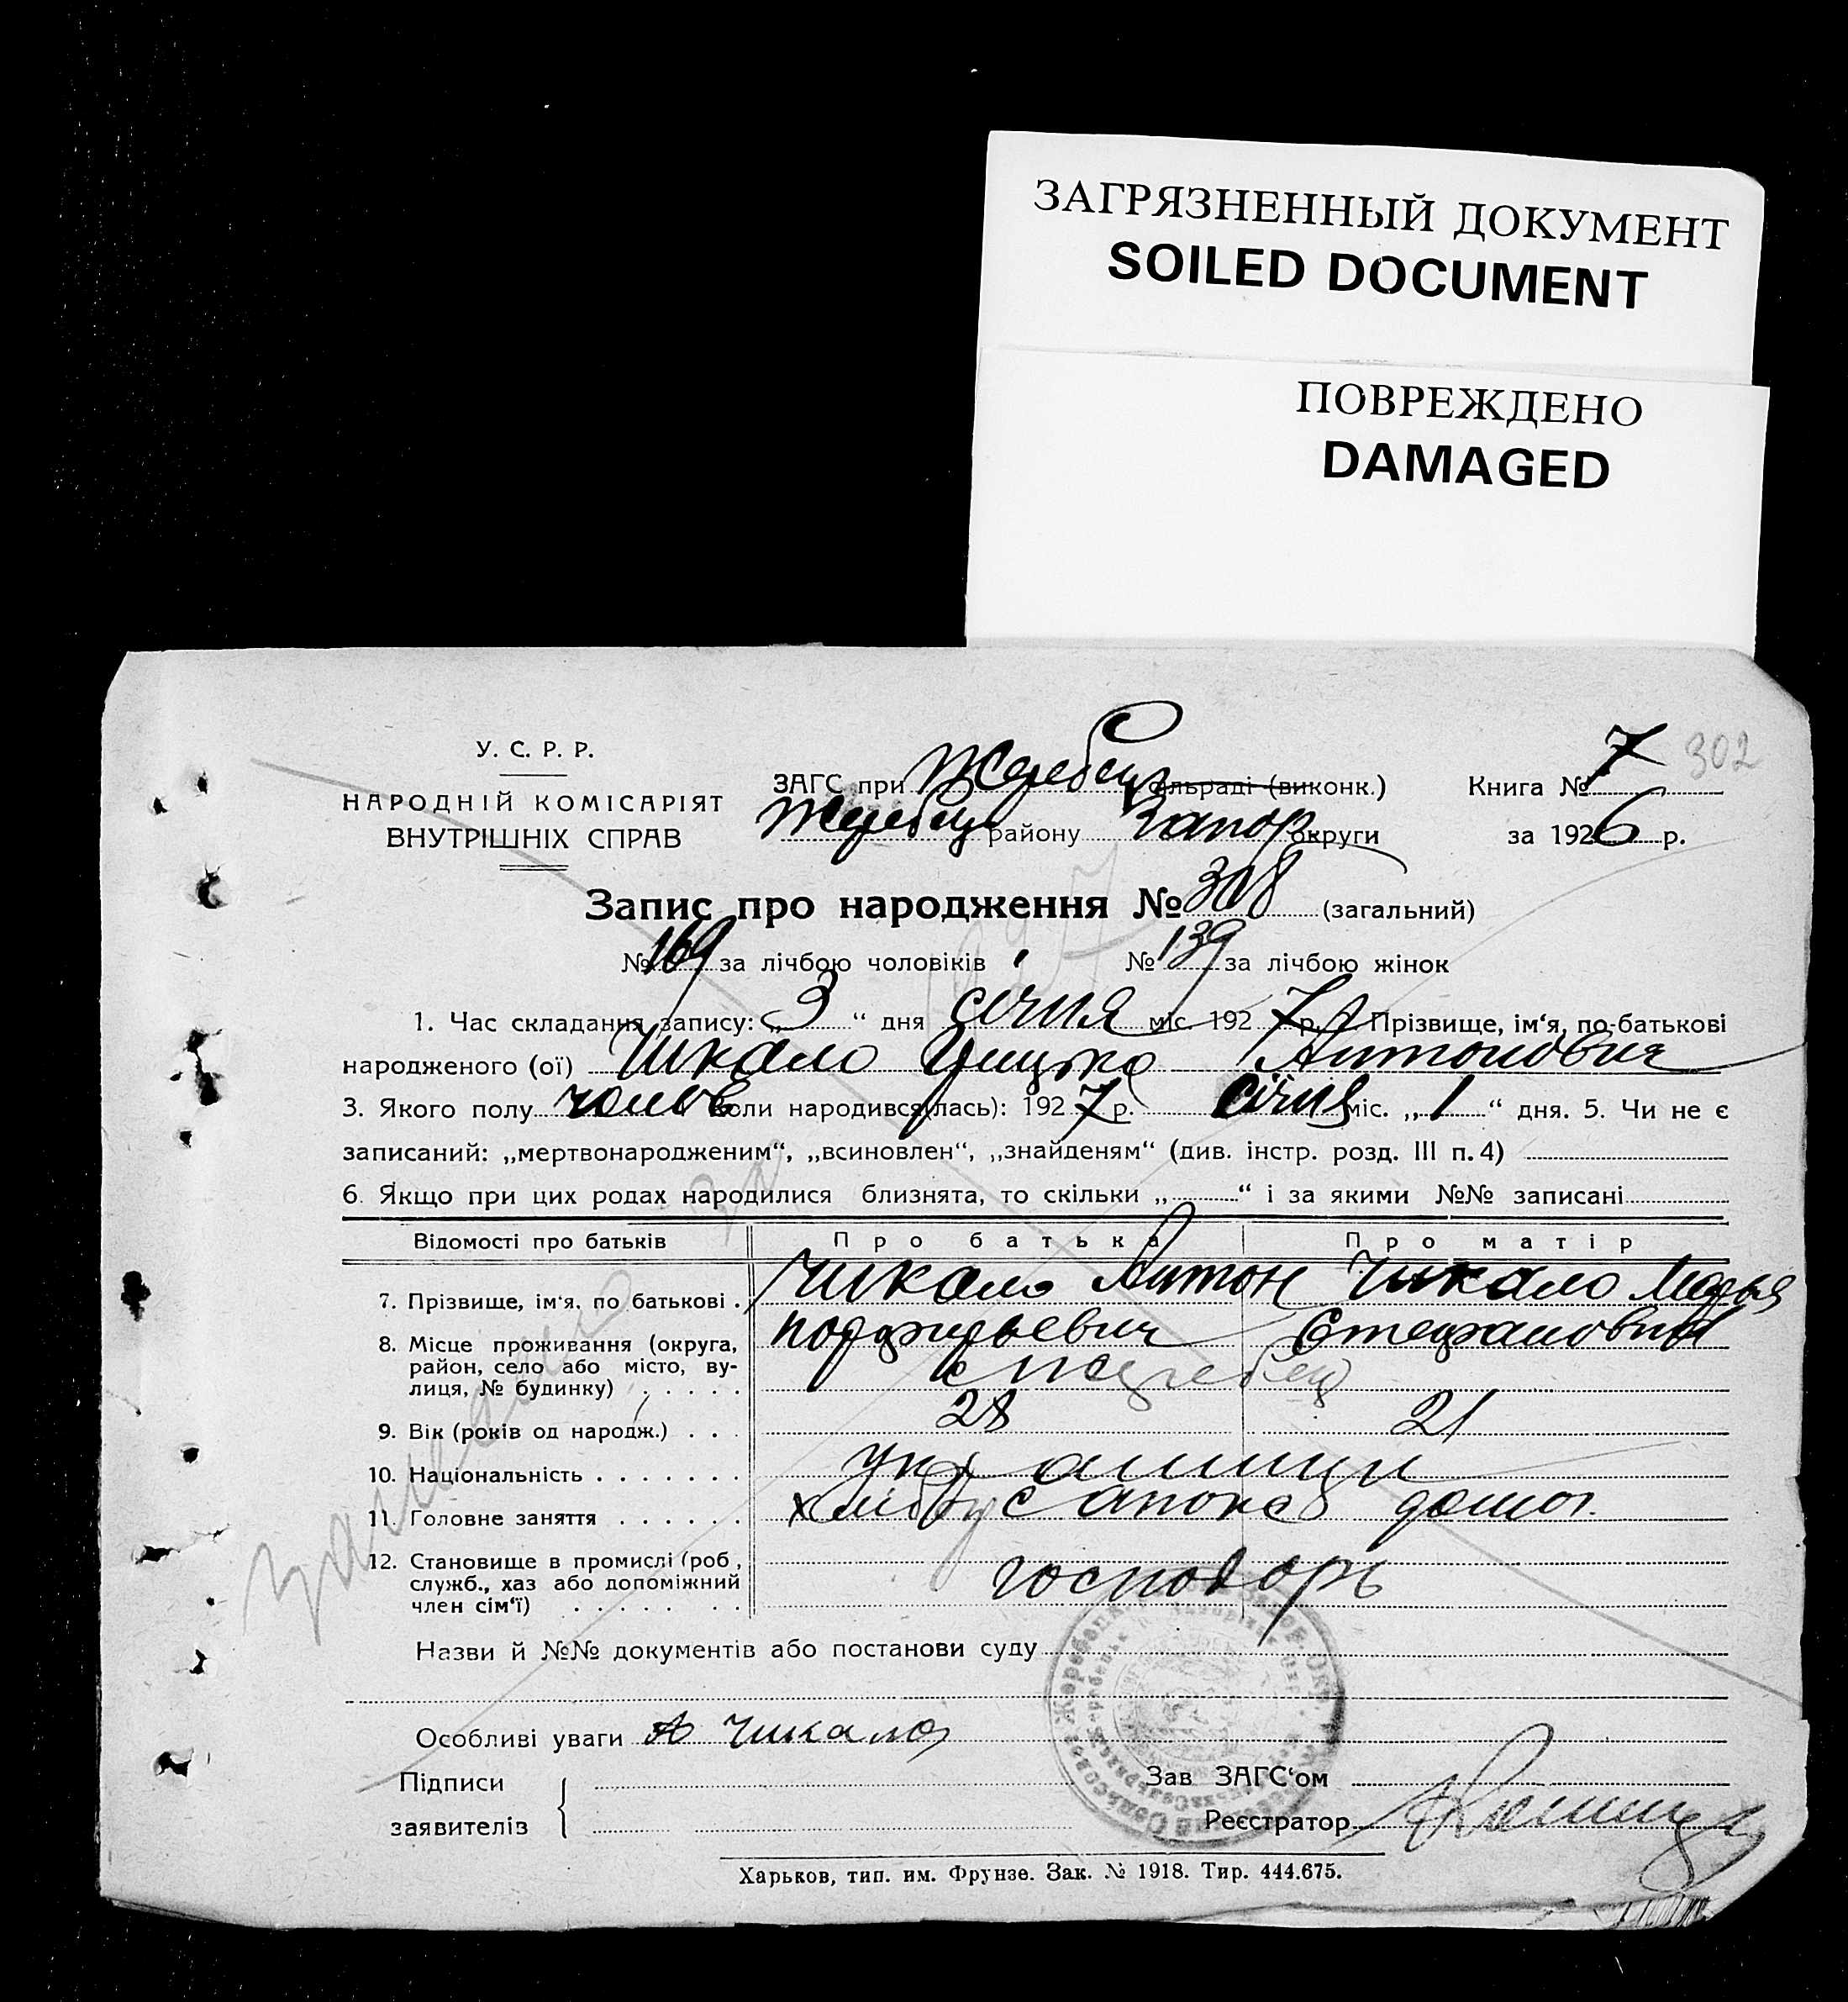 ЗАГРЯЗНЕННЫЙ ДОКУМЕНТ
SOILED DOCUMENT
ПОВРЕЖДЕНО
DAMAGED
У. С. Р. Р.
НАРОДНІЙ КОМІСАРІЯТ
ВНУТРІШНІХ СПРАВ
ЗАГС при Жеребец сільраді (виконк.)
Жеребец району Запор. округи
Книга № 7 302
за 1926 р.
Запис про народження № 308 (загальний)
№ 169 за лічбою чоловіків № 139 за лічбою жінок
1. Час складання запису: „3“ дня січня міс. 1927 р. Прізвище, ім‘я, по-батькові
народженого (ої) Чикало Грицько Антонович
3. Якого полу чолов Коли народився(лась): 1927 р. січня міс. „1“ дня. 5. Чи не є
записаний: „мертвонародженим“, „всиновлен“, „знайденям“ (див. інстр. розд. III п. 4)
6. Якщо при цих родах народилися близнята, то скільки „ “ і за якими №№ записані
Відомості про батьків Про батька Про матір
7. Прізвище, ім‘я, по батькові . Чикало Антон Чикало Марья
8. Місце проживання (округа, Порфирьевич Стефановна
район, село або місто, ву-
лиця, № будинку) . . . . . с Жеребец
9. Вік (років од народж.) . . . 28 21
10. Національність . . . . . . . українци
11. Головне заняття . . . . . . хлібу домог.
12. Становище в промислі (роб.,
служб., хаз або допоміжний господорь
член сім‘ї) . . . . . . . .
Назви й №№ документів або постанови суду
Особливі уваги А Чикало
Підписи
заявителів
Зав ЗАГС‘ом
Реєстратор
Харьков, тип. им. Фрунзе. Зак. № 1918. Тир. 444.675.